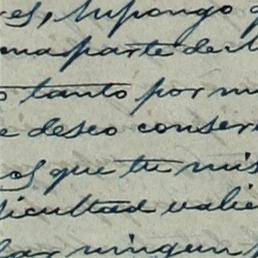 es, supongo q
una parte del
o tanto por m
e deseo conser
os que tu mis
ficultad valie
lar ningun p